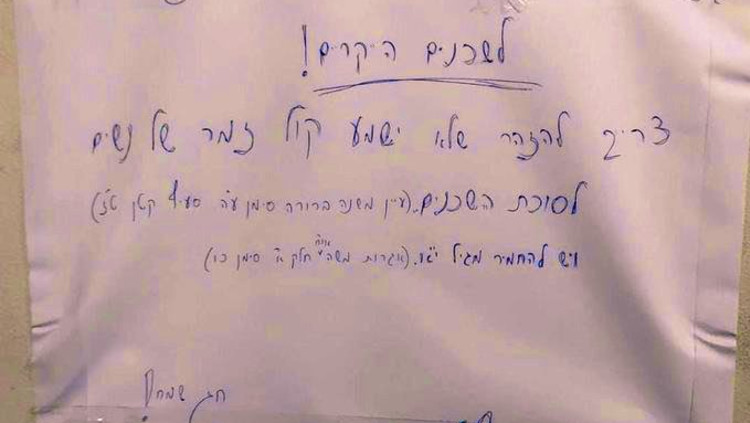 לשכנים היקרים!
צריך להזהר שלא ישמע קול זמר של נשים
לסוכת השכנים. (עיין משנה ברורה סימן ע"ה סעיף קטן ט"ז)
ויש להחמיר מגיל י"א. (אגרות משה או"ח חלק א' סימן כו)
חג שמח!